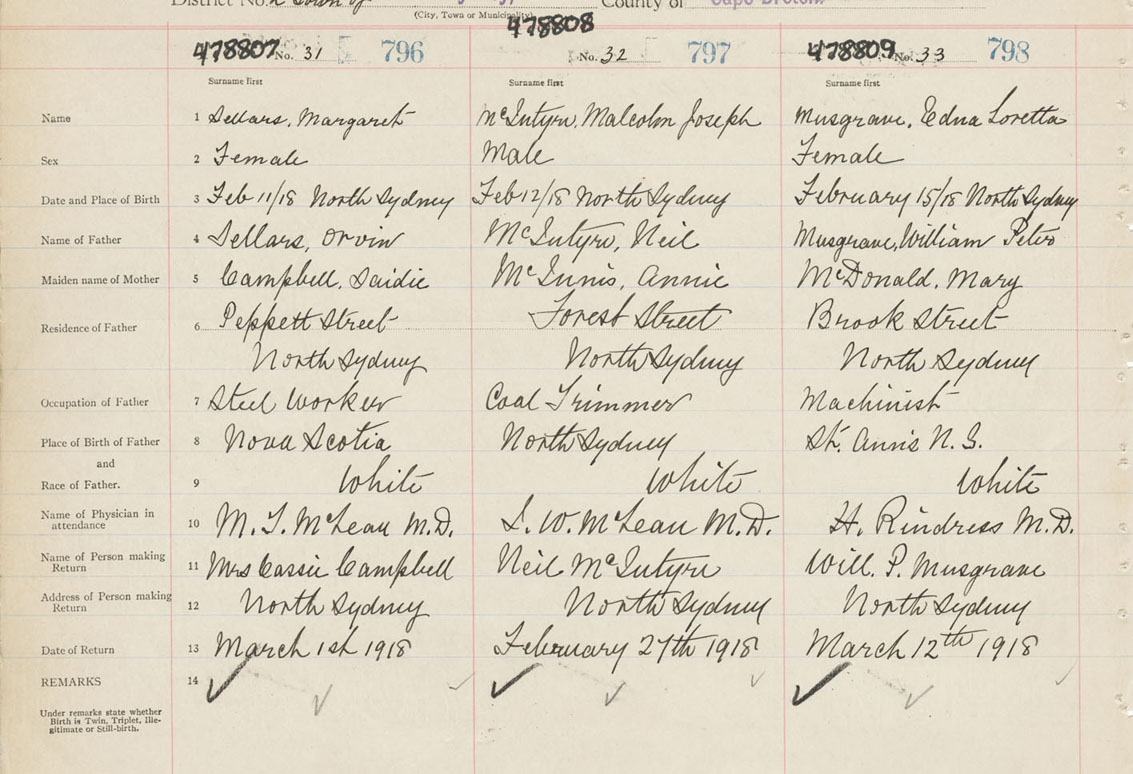 District No. 2 Town of County of Cape Breton
(City, Town or Municipality)
478807 No. 31 796 478808 No. 32 797 478809 No. 33 798
Surname first Surname first Surname first
Name 1 Sellars, Margaret McIntyre, Malcolm Joseph Musgrave, Edna Loretta
Sex 2 Female Male Female
Date and Place of Birth 3 Feb 11/18 North Sydney Feb 12/18 North Sydney February 15/18 North Sydney
Name of Father 4 Sellars, Orvin McIntyre, Neil Musgrave, William Peter
Maiden name of Mother 5 Campbell, Saidie McInnis, Annie McDonald, Mary
Residence of Father 6 Peppett Street Forest Street Brook Street
North Sydney North Sydney North Sydney
Occupation of Father 7 Steel Worker Coal Trimmer Machinist
Place of Birth of Father 8 Nova Scotia North Sydney St. Anns N.S.
and
Race of Father. 9 White White White
Name of Physician in attendance 10 M. T. McLean M.D. L. W. McLean M.D. H. Rindress M.D.
Name of Person making Return 11 Mrs Cassie Campbell Neil McIntyre Will. P. Musgrave
Address of Person making Return 12 North Sydney North Sydney North Sydney
Date of Return 13 March 1st 1918 February 27th 1918 March 12th 1918
REMARKS 14
Under remarks state whether
Birth is Twin, Triplet, Ille-
gitimate or Still-birth.